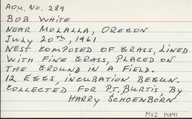 AOU. NO. 289
BOB WHITE
NEAR MOLALLA, OREGON
JULY 20TH, 1961
NEST COMPOSED OF GRASS, LINED
WITH FINE GRASS, PLACED ON
THE GROUND IN A FIELD.
12 EGGS, INCUBATION BEGUN.
COLLECTED FOR PT. BURTIS. BY
HARRY SCHOENBORN